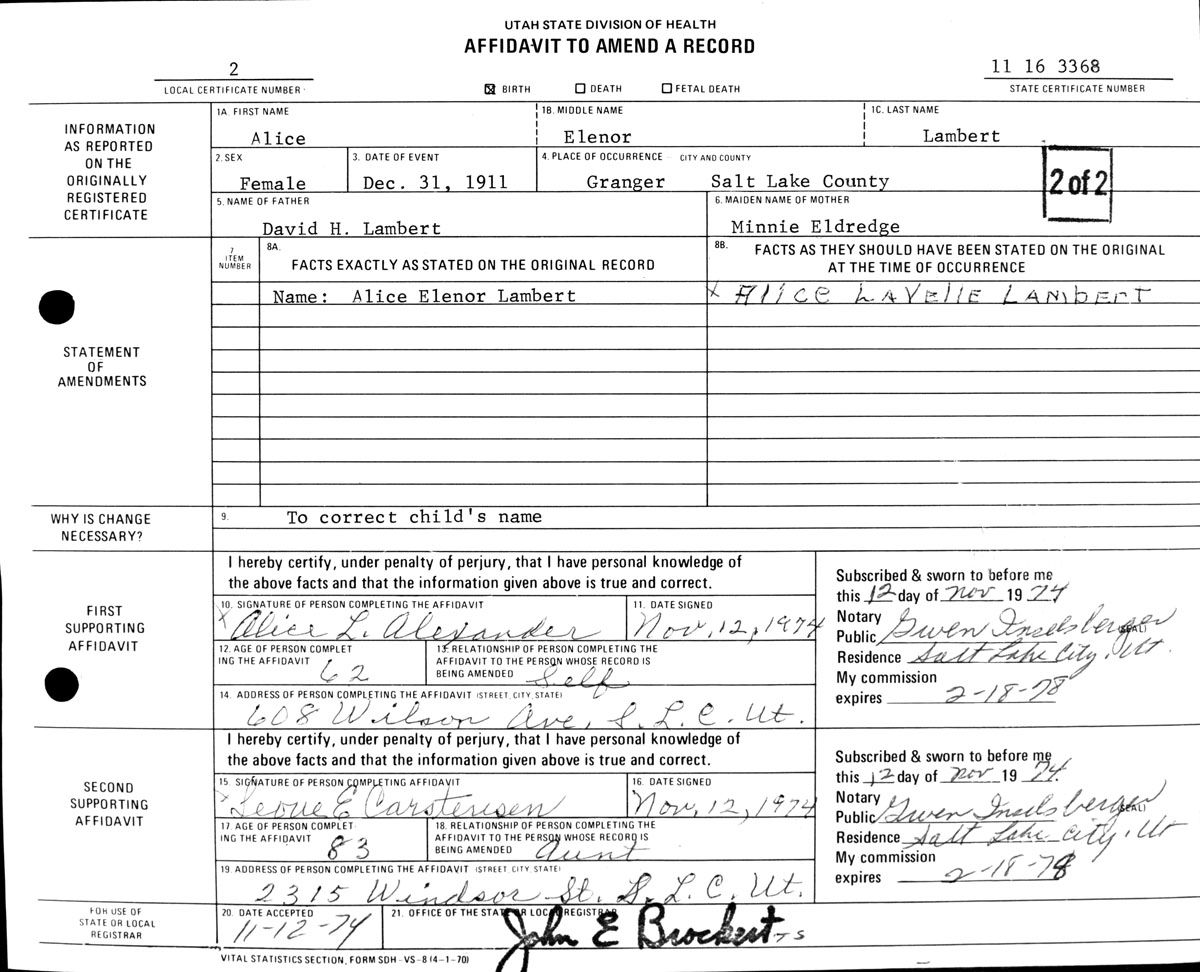 UTAH STATE DIVISION OF HEALTH
AFFIDAVIT TO AMEND A RECORD
2
LOCAL CERTIFICATE NUMBER
☒ BIRTH ☐ DEATH ☐ FETAL DEATH
11 16 3368
STATE CERTIFICATE NUMBER
INFORMATION
AS REPORTED
ON THE
ORIGINALLY
REGISTERED
CERTIFICATE
1A. FIRST NAME 1B. MIDDLE NAME 1C. LAST NAME
Alice Elenor Lambert
2. SEX 3. DATE OF EVENT 4. PLACE OF OCCURRENCE CITY AND COUNTY
Female Dec. 31, 1911 Granger Salt Lake County
2 of 2
5. NAME OF FATHER 6. MAIDEN NAME OF MOTHER
David H. Lambert Minnie Eldredge
STATEMENT
OF
AMENDMENTS
7 ITEM NUMBER
8A. FACTS EXACTLY AS STATED ON THE ORIGINAL RECORD
8B. FACTS AS THEY SHOULD HAVE BEEN STATED ON THE ORIGINAL
AT THE TIME OF OCCURRENCE
Name: Alice Elenor Lambert X ALICE LAVELLE LAMBERT
WHY IS CHANGE
NECESSARY?
9. To correct child's name
FIRST
SUPPORTING
AFFIDAVIT
I hereby certify, under penalty of perjury, that I have personal knowledge of
the above facts and that the information given above is true and correct.
10. SIGNATURE OF PERSON COMPLETING THE AFFIDAVIT 11. DATE SIGNED
X Alice L. Alexander Nov. 12, 1974
12. AGE OF PERSON COMPLET
ING THE AFFIDAVIT 62
13. RELATIONSHIP OF PERSON COMPLETING THE
AFFIDAVIT TO THE PERSON WHOSE RECORD IS
BEING AMENDED Self
14. ADDRESS OF PERSON COMPLETING THE AFFIDAVIT (STREET, CITY, STATE)
608 Wilson Ave, S. L. C. Ut.
Subscribed & sworn to before me
this 12 day of Nov 19 74
Notary
Public Gwen Inselsberger (SEAL)
Residence Salt Lake City, Ut.
My commission
expires 2-18-78
SECOND
SUPPORTING
AFFIDAVIT
I hereby certify, under penalty of perjury, that I have personal knowledge of
the above facts and that the information given above is true and correct.
15. SIGNATURE OF PERSON COMPLETING AFFIDAVIT 16. DATE SIGNED
X E Carstensen Nov. 12, 1974
17. AGE OF PERSON COMPLET
ING THE AFFIDAVIT 83
18. RELATIONSHIP OF PERSON COMPLETING THE
AFFIDAVIT TO THE PERSON WHOSE RECORD IS
BEING AMENDED Aunt
19. ADDRESS OF PERSON COMPLETING THE AFFIDAVIT (STREET, CITY, STATE)
2315 Windsor St. S. L. C. Ut.
Subscribed & sworn to before me
this 12 day of Nov 19 74.
Notary
Public Gwen Inselsberger (SEAL)
Residence Salt Lake City, Ut
My commission
expires 2-18-78
FOR USE OF
STATE OR LOCAL
REGISTRAR
20. DATE ACCEPTED 21. OFFICE OF THE STATE OR LOCAL REGISTRAR
11-12-74 John E Brockert TS
VITAL STATISTICS SECTION, FORM SDH-VS-8 (4-1-70)